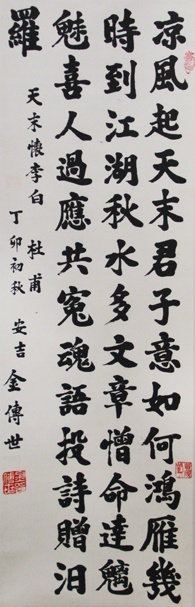 凉風起天末君子意如何鴻雁幾
時到江湖秋水多文章憎命達魑
魅喜人過應共冤魂語投詩贈汨
羅
天末懷李白 杜甫
丁卯初秋 安吉 金傳世